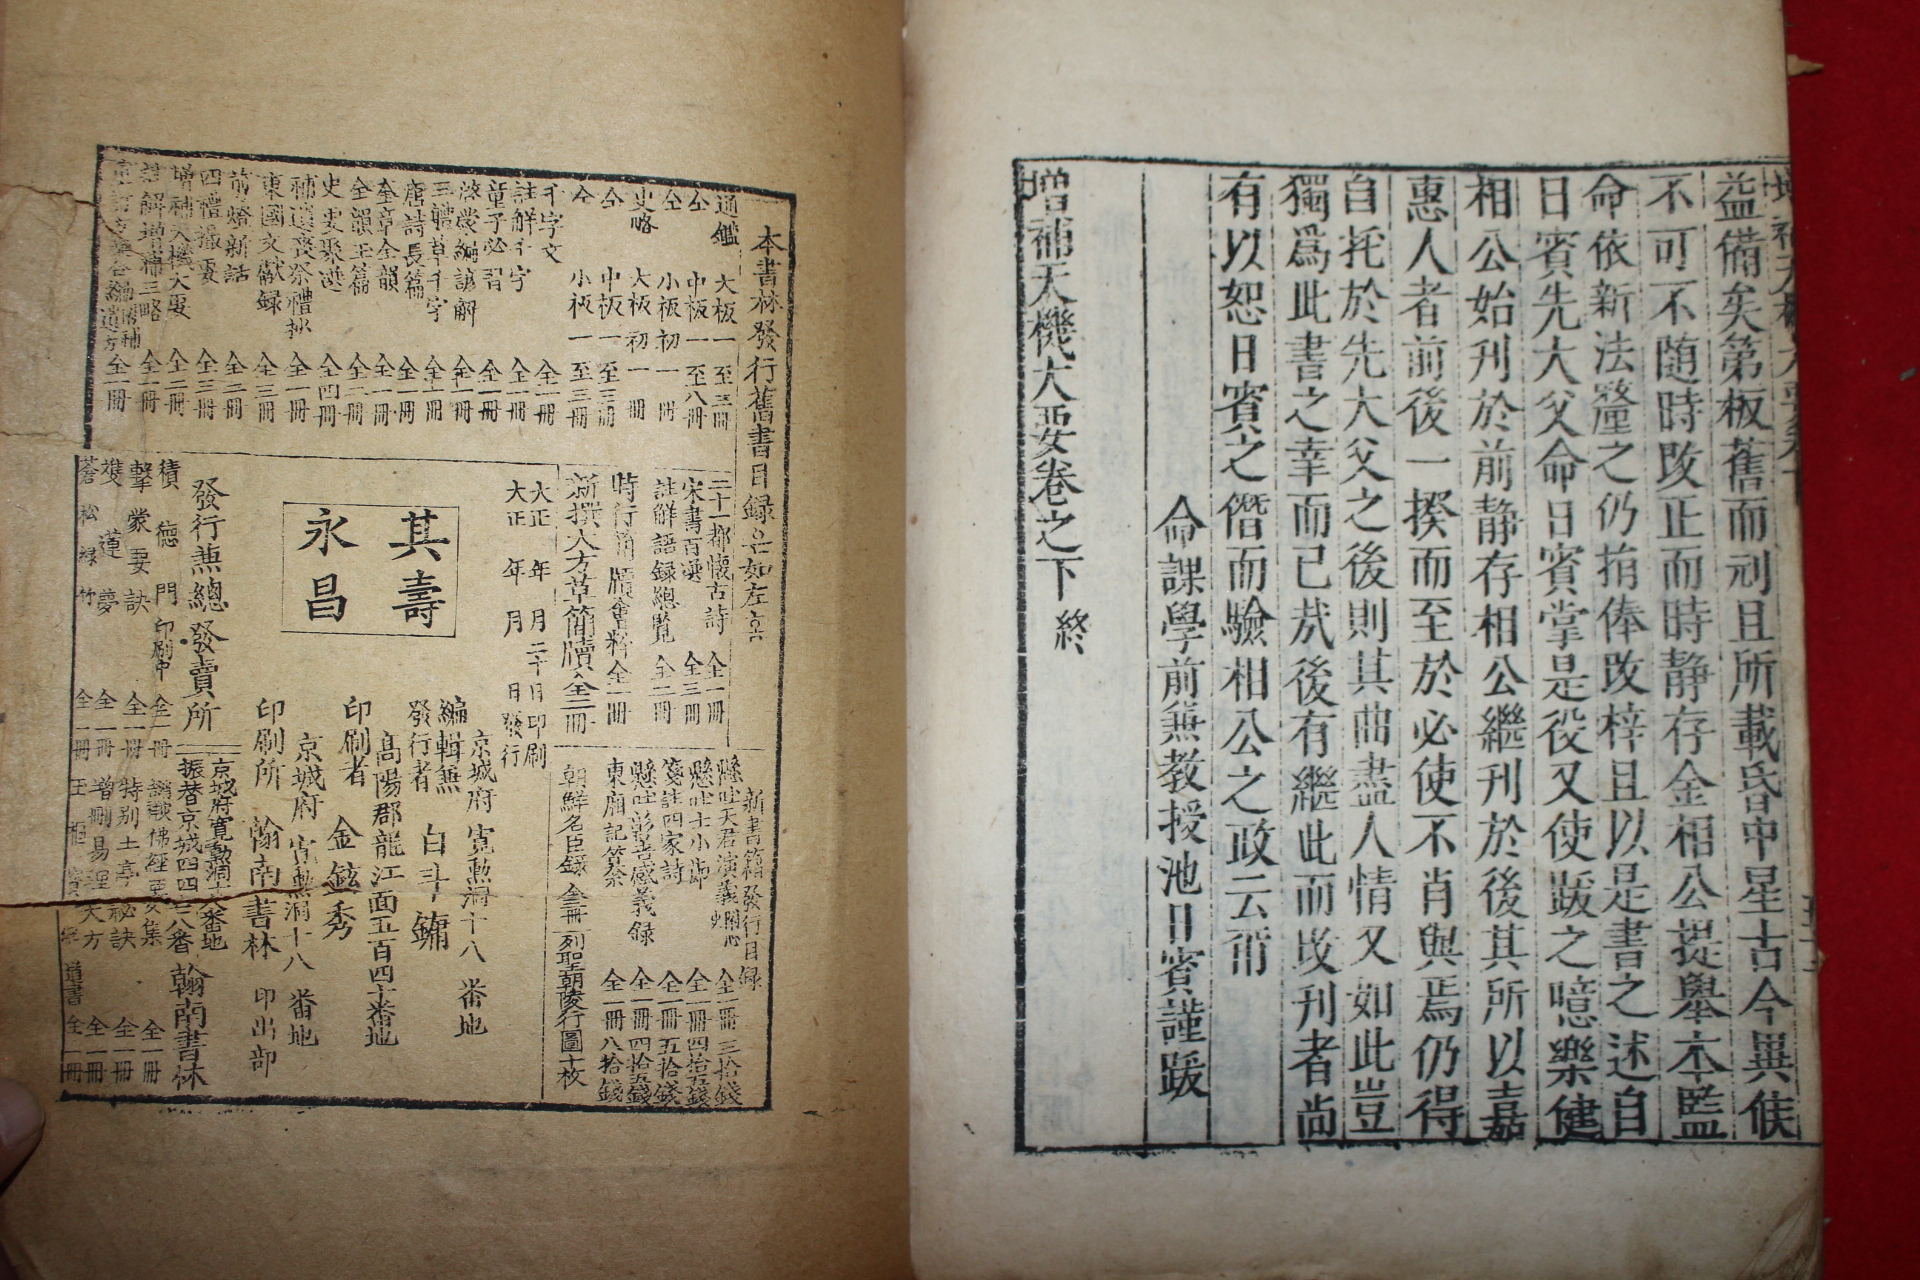 益備矣第板舊而刓且所載昏中星古今異候
不可不随時改正而時静存金相公提擧本監
命依新法釐之仍捐俸改梓且以是書之述自
日賓先大父命日賓掌是役又使跋之噫樂健
相公始刊於前静存相公繼刊於後其所以嘉
惠人者前後一揆而至於必使不肖與焉仍得
自托於先大父之後則其曲盡人情又如此豈
獨爲此書之幸而已㢤後有繼此而改刊者尚
有以恕日賓之僭而驗相公之政云甭
命課學前兼教授池日賓謹跋
增補天機大要卷之下 終
本書林發行舊書目録
通鑑 大板 一至三冊
仝 中板 一至八冊
仝 小板 初一冊
史略 大板 初一冊
仝 中板 一至三冊
仝 小板 一至三冊
千字文 全一冊
註解千字 全一冊
童子必習 全一冊
啓蒙編諺解 全一冊
三體草千字 全一冊
唐詩長篇 全一冊
奎章全韻 全一冊
全韻玉篇 全一冊
史要聚選 全四冊
補遺喪祭禮抄 全一冊
東國文獻録 全三冊
剪燈新話 全二冊
四禮撮要 全三冊
增補天機大要 全二冊
註解增補三略 全一冊
二十一都懷古詩 全一冊
宋書百選 全三冊
註解語録總覧 全二冊
時行簡牘會粹 全一冊
新撰八方草簡牘 全二冊
新書籍發行目録
懸吐天君演義 全一冊 三拾錢
懸吐士小節 全一冊 四拾五錢
箋註四家詩 全一冊 五拾錢
懸吐彰善感義録 全一冊 四拾五錢
東廂記纂 全一冊 八拾錢
朝鮮名臣録 全三冊
列聖朝陵行圖十枚
大正 年 月二十日印刷
大正 年 月 日發行
其壽
永昌
京城府寛勳洞十八番地
編輯兼
發行者 白斗鏞
高陽郡龍江面五百四十番地
印刷者 金鉉秀
京城府寛勲洞十八番地
印刷所 翰南書林印出部
發行兼總發賣所
京城府寛勳洞十八番地
振替京城四四二八番
翰南書林
積德門 印刷中 全一冊
擊蒙要訣 全一冊
特別土亭秘訣 全一冊
增刪易理大方 全一冊
蒼松緑竹 全一冊